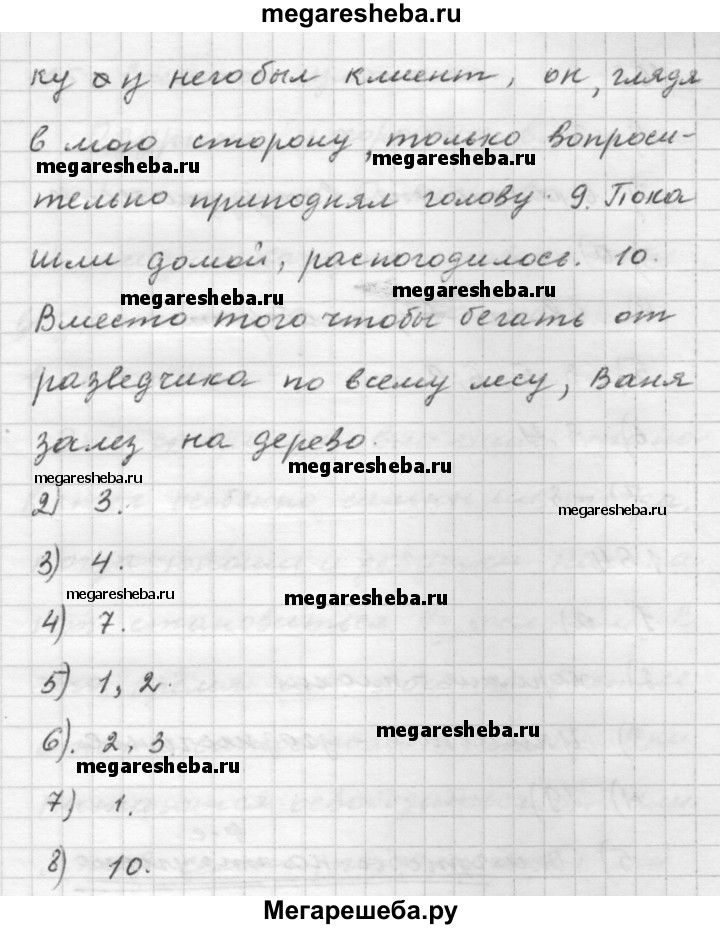 megaresheba.ru
ку у него был клиент, он, глядя
в мою сторону, только вопроси-
megaresheba.ru
megaresheba.ru
тельно приподнял голову. 9. Пока
шли домой, распогодилось. 10.
megaresheba.ru
megaresheba.ru
Вместо того чтобы бегать от
разведчика по всему лесу, Ваня
залез на дерево.
megaresheba.ru
megaresheba.ru
2) 3.
megaresheba.ru
3) 4.
megaresheba.ru
megaresheba.ru
4) 7.
5) 1, 2.
6). 2, 3
megaresheba.ru
megaresheba.ru
7) 1.
8) 10.
Мегарешеба.ру